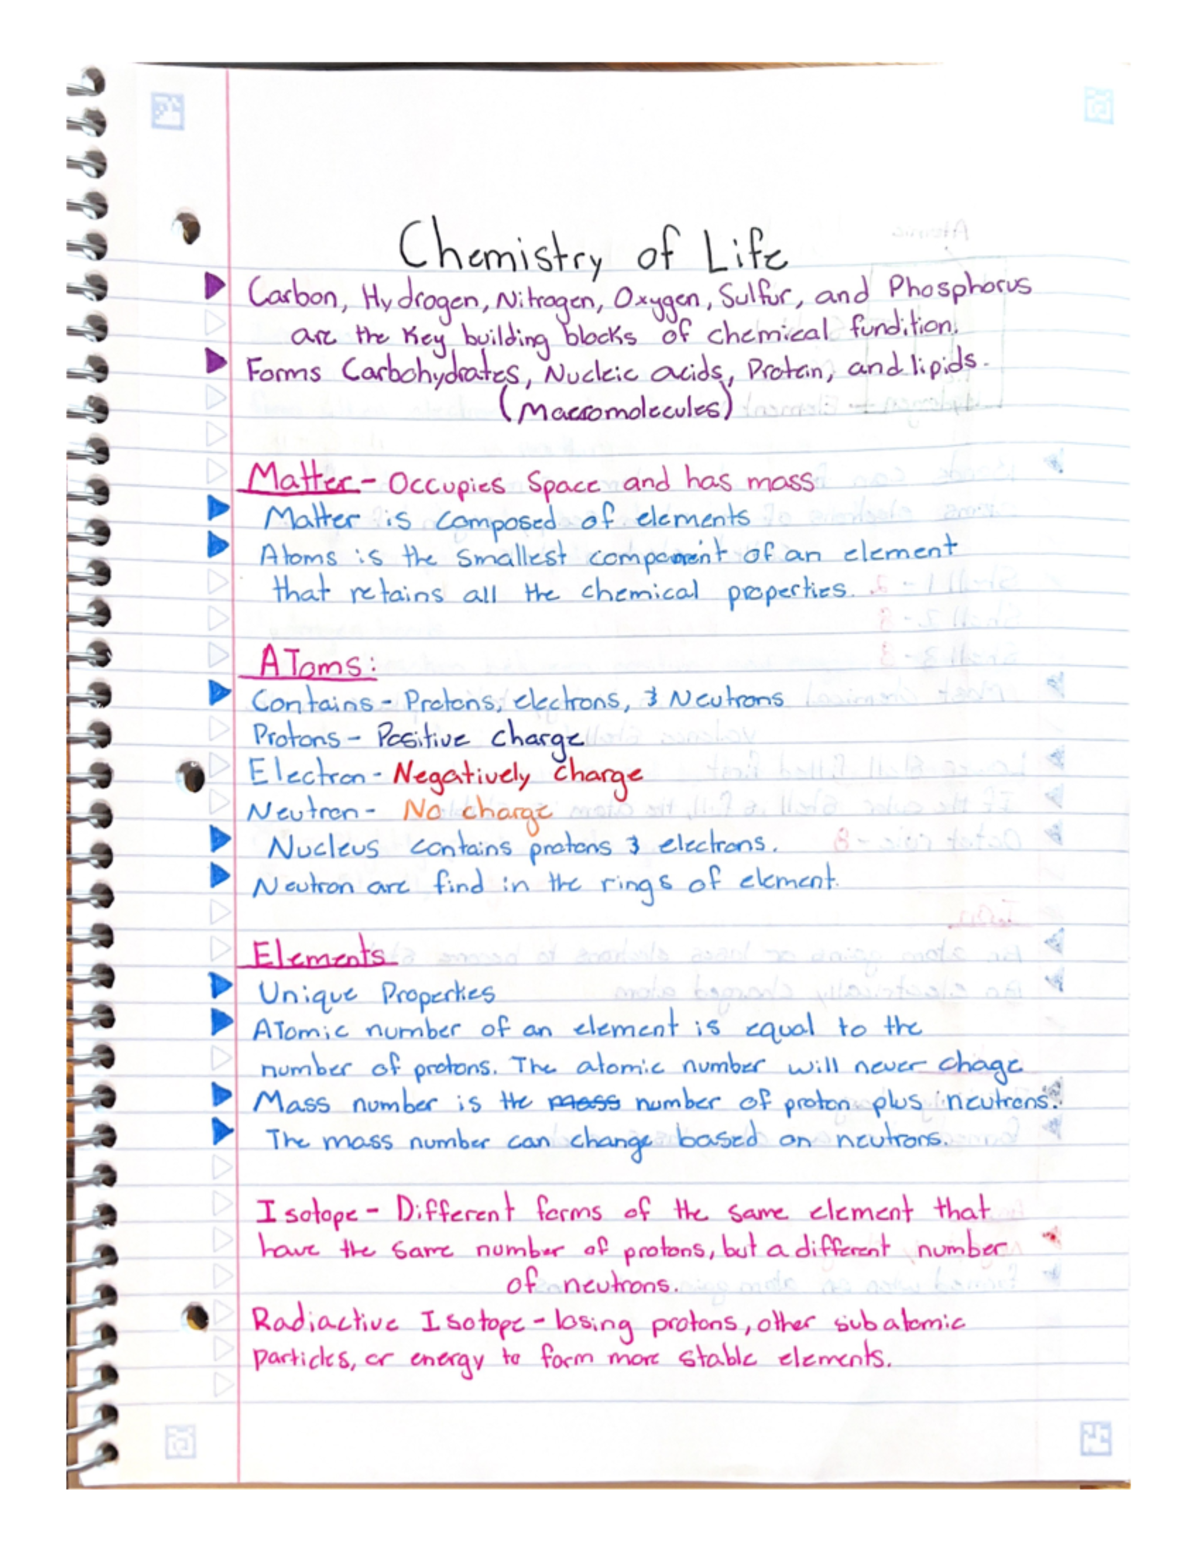 Chemistry of Life
Carbon, Hydrogen, Nitrogen, Oxygen, Sulfur, and Phosphorus
are the key building blocks of chemical fundition.
Forms Carbohydrates, Nucleic acids, Protein, and lipids.
(Macromolecules)
Matter - Occupies Space and has mass
Matter is composed of elements
Atoms is the smallest component of an element
that retains all the chemical properties.
AToms:
Contains - Protons, electrons, & Neutrons
Protons - Positive charge
Electron - Negatively charge
Neutron - No charge
Nucleus contains protons & electrons.
Neutron are find in the rings of element.
Elements
Unique Properties
ATomic number of an element is equal to the
number of protons. The atomic number will never chage
Mass number is the mass number of proton plus neutrons.
The mass number can change based on neutrons.
Isotope - Different forms of the same element that
have the same number of protons, but a different number
of neutrons.
Radiactive Isotope - losing protons, other subatomic
particles, or energy to form more stable elements.